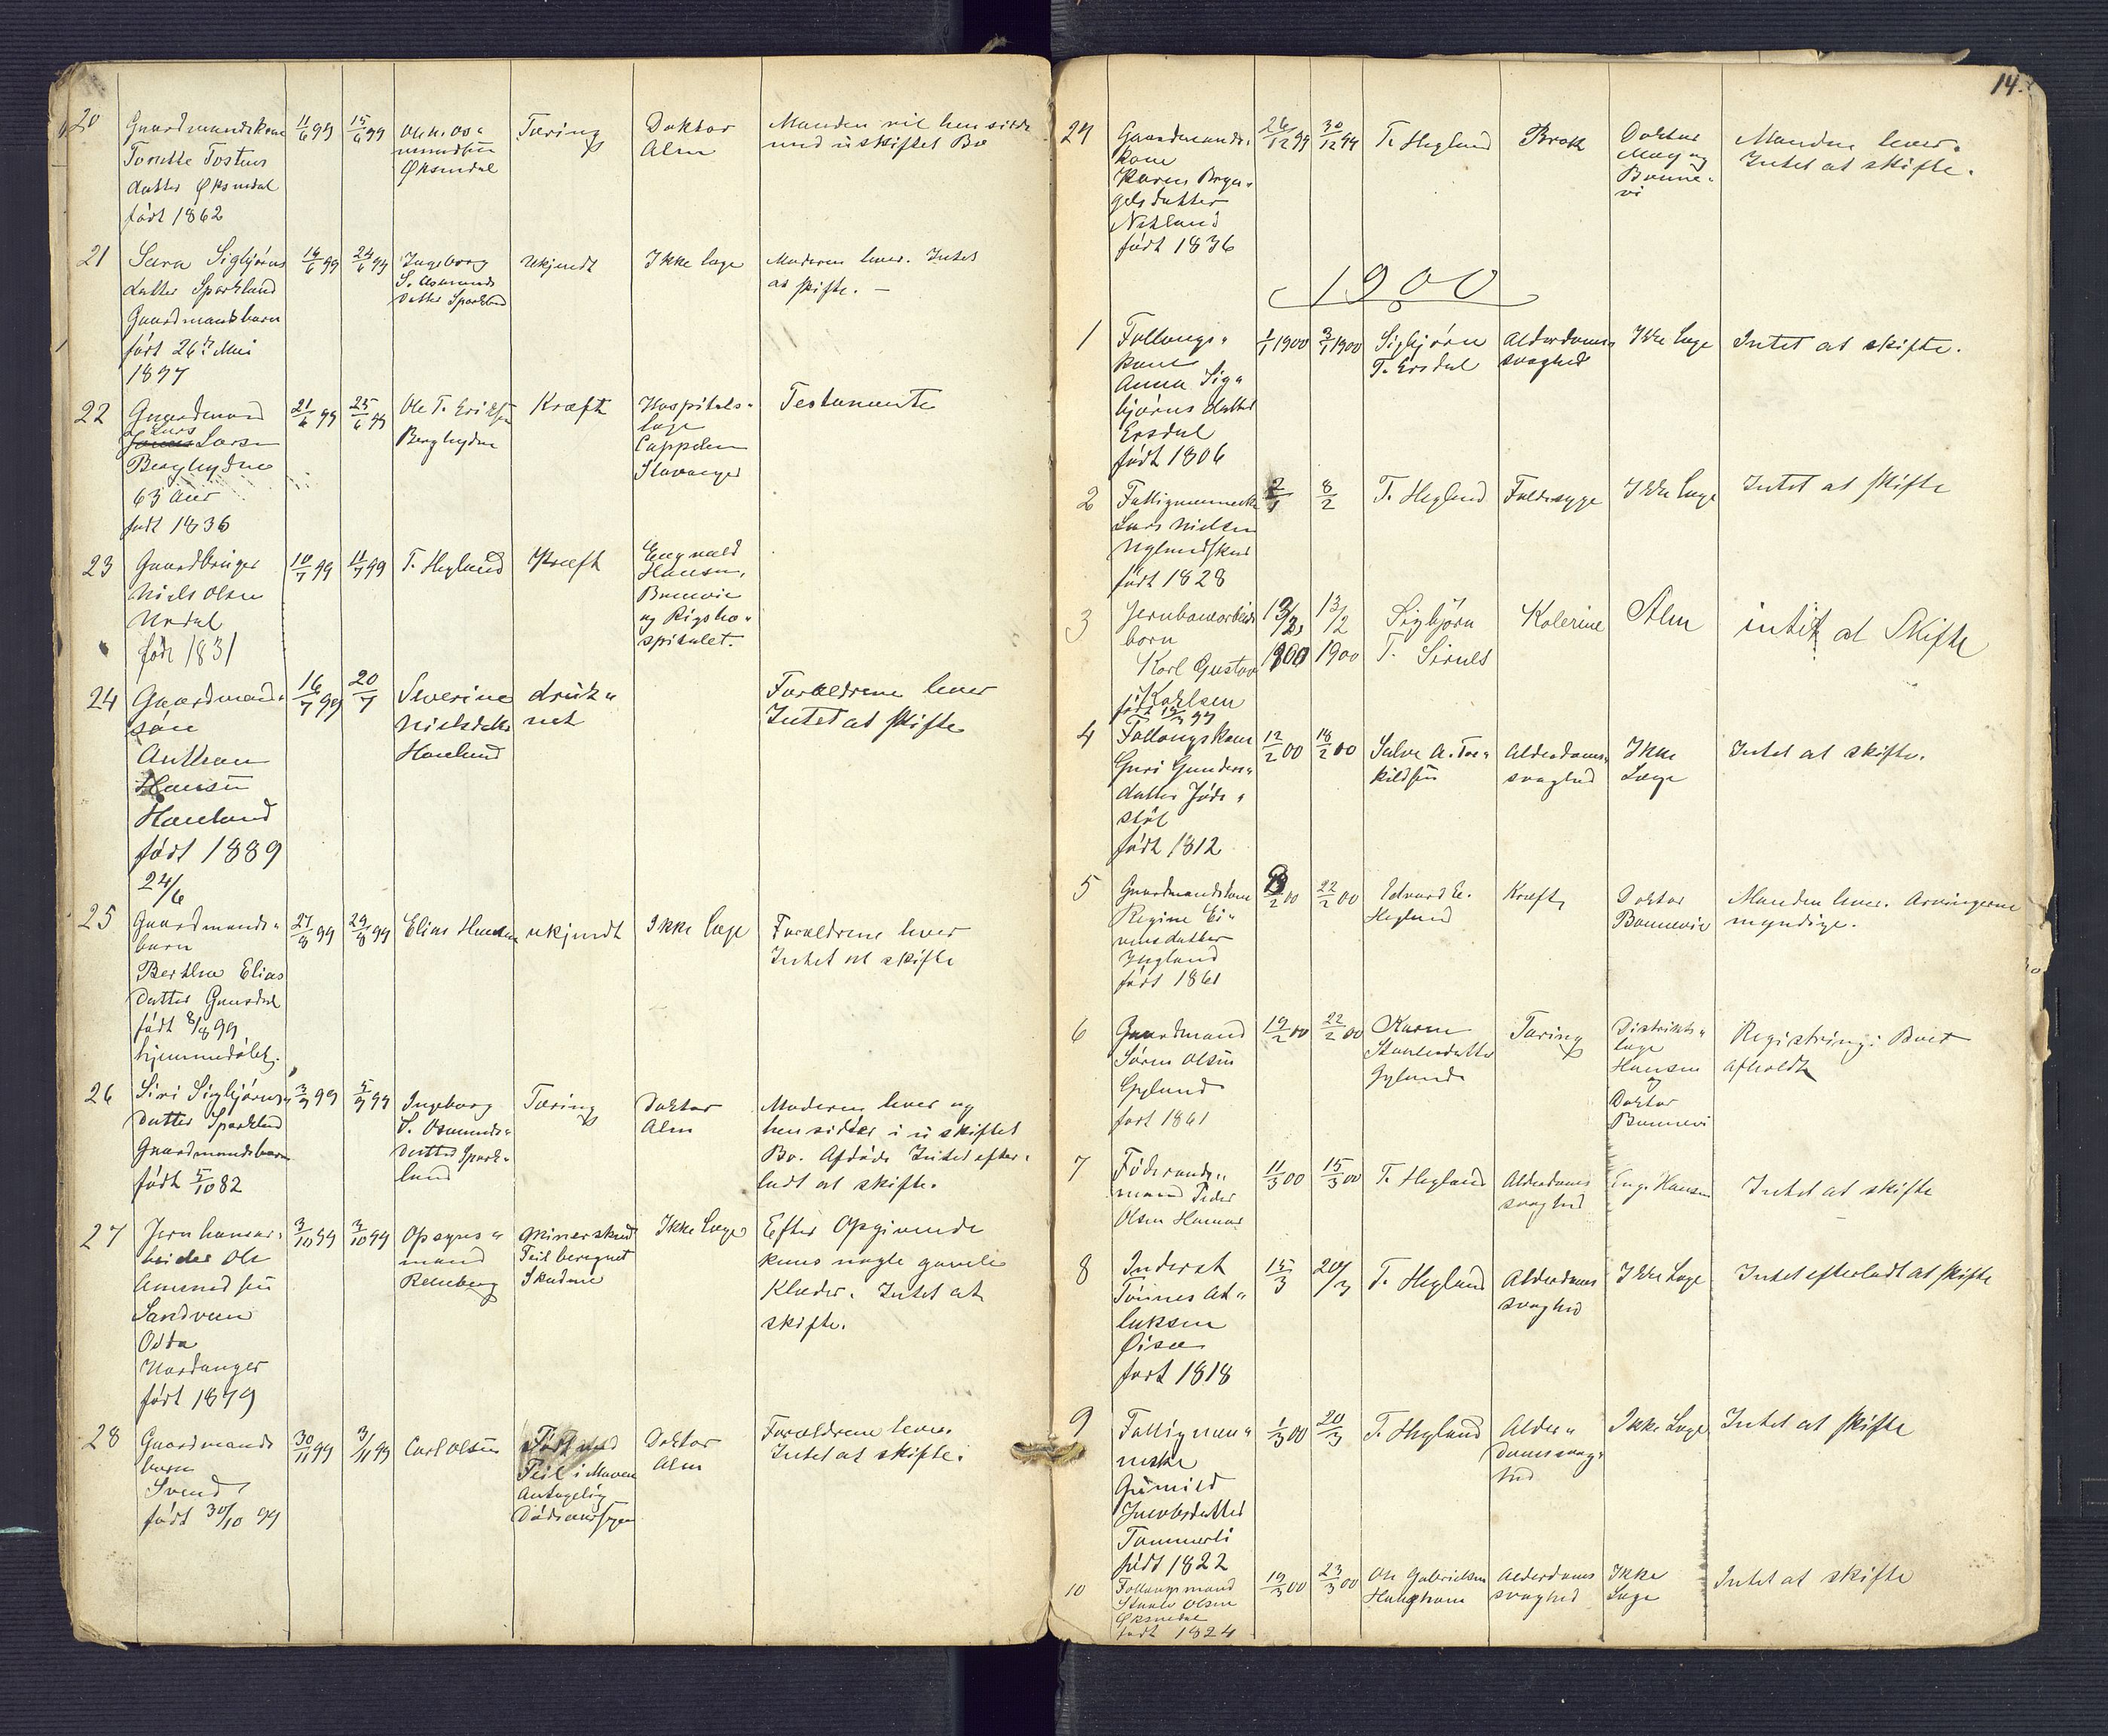 20
Gaardmandskone
Tostens
datter Øksendal
født 1862
11/6 99
15/6 99
Øksendal
Tæring
Doktor
Alm
Manden vil hensidde
med uskiftet Bo
21
Sara Sigbjørns
datter Sparkland
Gaardmandsbarn
født 26de Mai
1897
24/6 99
Ingeborg
S. Asmunds
datter
Ukjendt
Ikke læge
Moderen lever. Intet
at skifte. —
22
Gaardmand
Lars
Larsen
63 Aar
født 1836
21/6 99
25/6 99
Ole T.
Kræft
Hospitals-
læge
Cappelen
Stavanger
Testamente
23
Gaardbruger
Niels Olsen
født 1831
10/7 99
11/7 99
T. Hegland
Kræft
Hansen,
og Rigsho-
spitalet.
24
Gaardmands
søn
Hansen
Haaland
født 1889
24/6
16/7 99
20/7
Severine
Nielsdatter
druk-
net
Forældrene lever
Intet at skifte
25
Gaardmands-
barn
Bertha Elias
datter
født 8/8 99
hjemmedøbt.
27/8 99
29/8 99
Elias Hansen
ukjendt
Ikke læge
Forældrene lever
Intet at skifte
26
Siri Sigbjørns-
datter
Gaardmandsbarn
født 5/10 82
3/9 99
5/9 99
Ingeborg
S. Osmunds-
datter Spark-
land
Tæring
Doktor
Alm
Moderen lever og
hensidder i uskiftet
Bo. Afdøde Intet efter-
ladt at skifte.
27
Jernbanear-
beider Ole
Amundsen
Sandven
Odda
Hardanger
født 1879
3/10 99
3/10 99
Opsyns-
mand
Minerskud
Feil beregnet
Skudene
Ikke Læge
Efter Opgivende
kuns nogle gamle
Klæder. Intet at
skifte.
28
Gaardmands
barn
Svend
født 30/10 99
30/11 99
3/11 99
Carl Olsen
Født med
Feil i Maven
Antagelig
Dødsaarsagen
Doktor
Alm
Forældrene lever.
Intet at skifte.
14.
29
Gaardmands-
kone
Karen
datter
født 1836
26/12 99
30/12 99
T. Hegland
Brok
Doktor
og
Bonne-
vi
Manden lever.
Intet at skifte.
1900
1
Follaugs-
kone
Anna Sig-
bjørns datter
Ersdal
født 1806
1/1 1900
3/1 1900
Sigbjørn
T. Ersdal
Alderdoms-
svaghed
Ikke Læge
Intet at skifte.
2
Fattigmenneske
Lars Nielsen
født 1828
8/2
T. Hegland
Faldesyge
Ikke læge
Intet at skifte
3
Jernbanearbeids
barn
Karl Gustav
Karlsen
født
13/2
1900
13/2
1900
Sigbjørn
T. Sirnes
Kolerine
Alm
intet at Skifte
4
Follaugskone
Guri Gunders-
datter
støl
født 1812
12/2 00
18/2 00
Salve A.
Alderdoms-
svaghed
Ikke
Læge
Intet at skifte.
5
Gaardmandskone
Regine Ei-
vinsdatter
født 1861
22/2 00
Edvard E.
Hegland
Kræft
Doktor
Bonnevie
Manden lever. Arvingerne
myndige.
6
Gaardmand
Søren Olsen
Gyland
født 1861
19/2 00
22/2 00
Karen
Gyland
Tæring
Distrikts-
læge
Hansen
og
Doktor
Bonnevi
Registrering i Boet
afholdt
7
Føderaads-
mand Peder
Olsen Hamar
11/3 00
15/3 00
T. Hegland
Alderdoms
svaghed
Eug. Hansen
Intet at skifte
8
Inderst
Tønnes At-
laksen
Øisæ
født 1818
15/3
20/3
T. Hegland
Alderdoms
svaghed
Ikke Læge
Intet efterladt at skifte
9
Fattigmen-
neske
Gunild
Jacobsdatter
Tommerli
født 1822
1/3 00
20/3
T. Hegland
Alder-
domssvag-
hed
Ikke Læge
Intet at skifte
10
Follaugsmand
Staale Olsen
Øksendal
født 1824
19/3 00
23/3 00
Ole Gabrielsen
Alderdoms
svaghed
Ikke
Læge
Intet at skifte